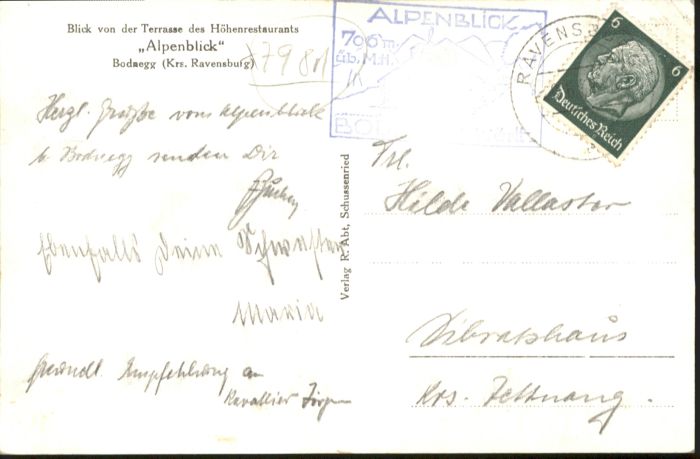 Blick von der Terrasse des Höhenrestaurants
„Alpenblick“
Bodnegg (Krs. Ravensburg)
ALPENBLICK
706 m.
üb. M.H.
RAVENSB
6
6
Deutsches Reich
Herzl. Grüße vom Alpenblick
b. Bodnegg senden Dir
Ebenfalls Deine Schwester
Maria
freundl. Empfehlung an
Kavallier
Verlag R. Abt, Schussenried
Frl.
Hilde Vallaster
Siberatshaus
Krs. Tettnang.